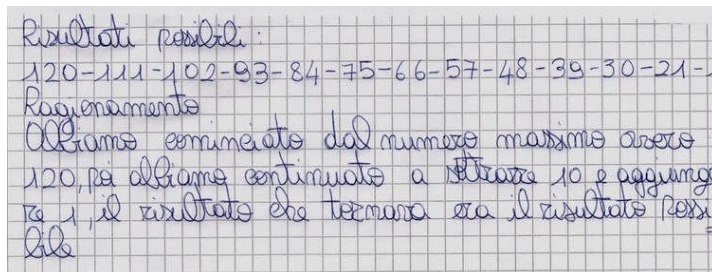 Risultati possibili:
120-111-102-93-84-75-66-57-48-39-30-21-
Ragionamento
Abbiamo cominciato dal numero massimo ovvero
120, poi abbiamo continuato a sottrarre 10 e aggiunge
re 1, il risultato che tornava era il risultato possi
bile